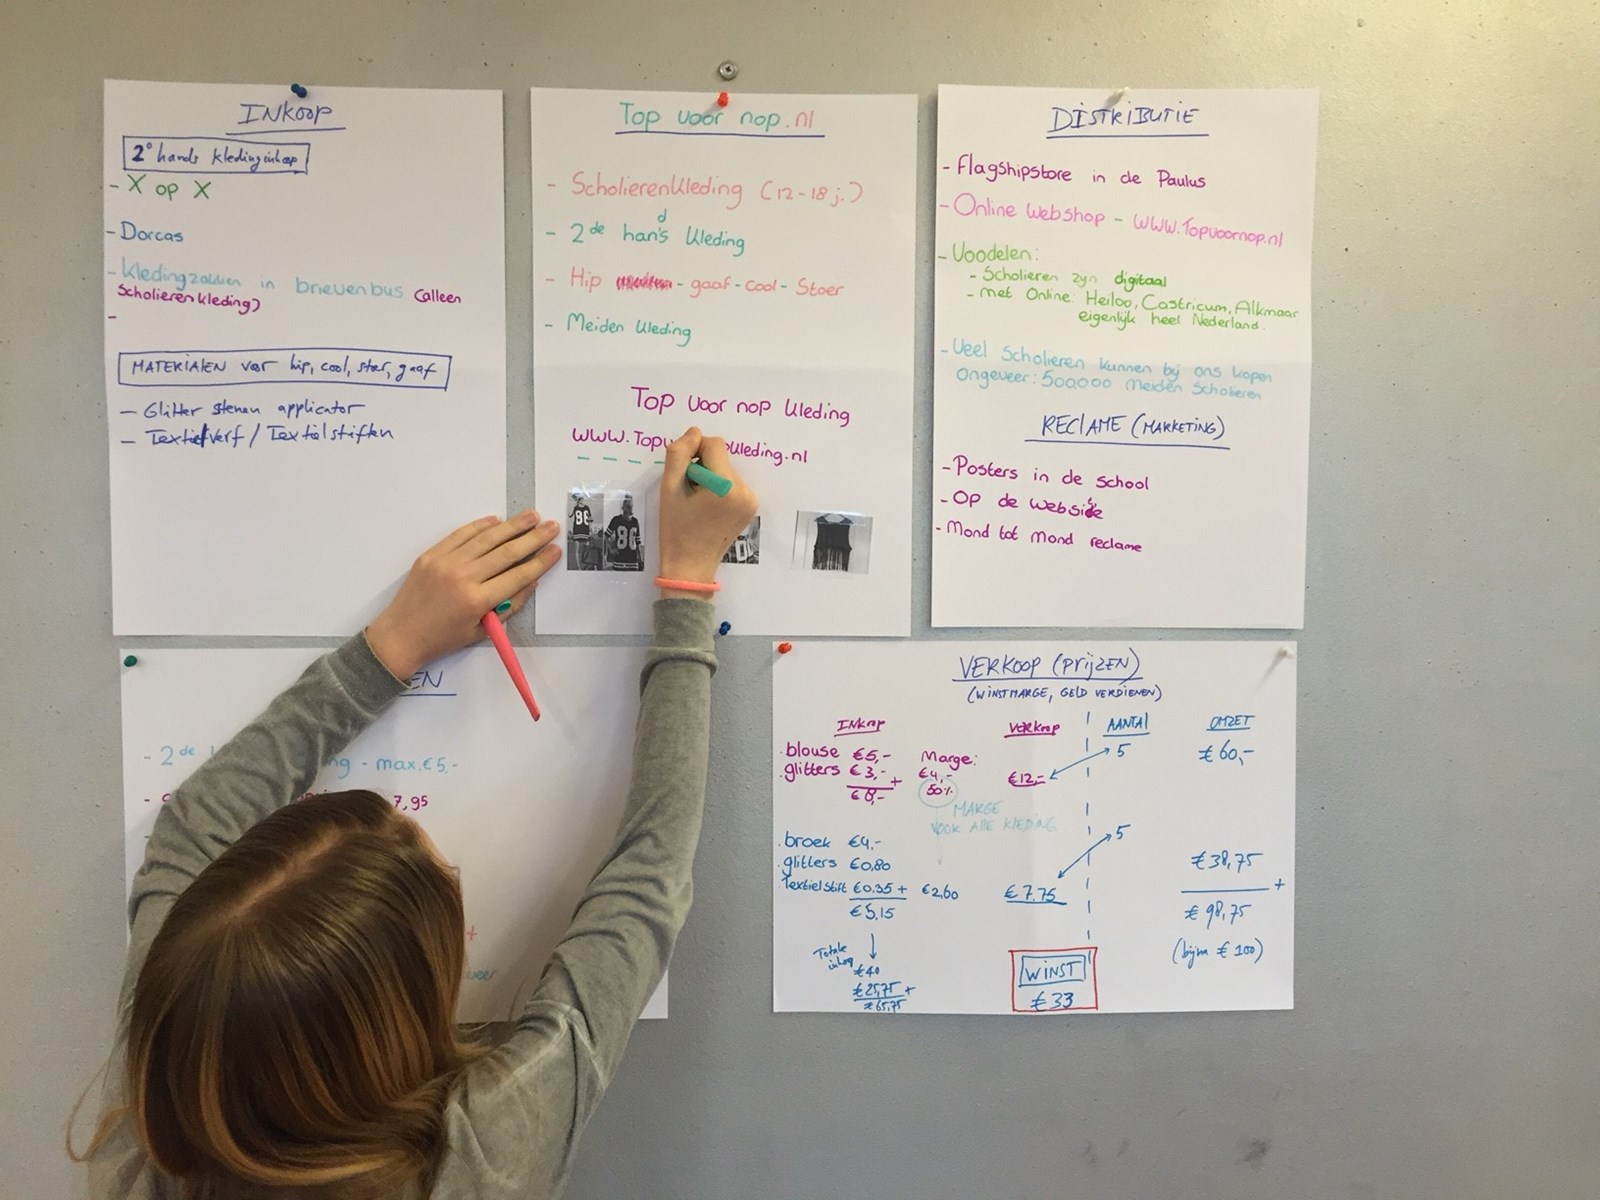 INKOOP
2° hands kledinginkoop
- X op X
- Dorcas
- Kledingzakken in brievenbus (alleen
Scholierenkleding)
-
MATERIALEN voor hip, cool, stoer, gaaf
- Glitter stenen applicator
- Textielverf / Textielstiften
Top voor nop.nl
- Scholierenkleding (12-18 j.)
- 2de hands kleding
- Hip - gaaf - cool - Stoer
- Meiden kleding
Top voor nop kleding
www.Topv kleding.nl
86
86
DISTRIBUTIE
- Flagshipstore in de Paulus
- Online webshop - www.Topvoornop.nl
- Voodelen:
- Scholieren zyn digitaal
- met Online: Heiloo, Castricum, Alkmaar
eigenlijk heel Nederland.
- Veel Scholieren kunnen bij ons kopen
Ongeveer: 500.000 meiden scholieren
RECLAME (MARKETING)
- Posters in de school
- Op de website
- Mond tot mond reclame
EN
- 2de ng - max. €5,-
- 7,95
+
VERKOOP (PRIJZEN)
(WINSTMARGE, GELD VERDIENEN)
INKOOP VERKOOP AANTAL OMZET
blouse €5,- Marge: 5 €60,-
glitters €3,- + €4,- €12,-
€8,- 50%
MARGE
VOOR ALLE KLEDING
broek €4,- 5
glitters €0,80 €38,75
Textielstift €0,35 + €2,60 €7.75 +
€5,15 €98,75
Totale
inkoop €40 WINST (bijna €100)
€25,75 + €33
€65,75